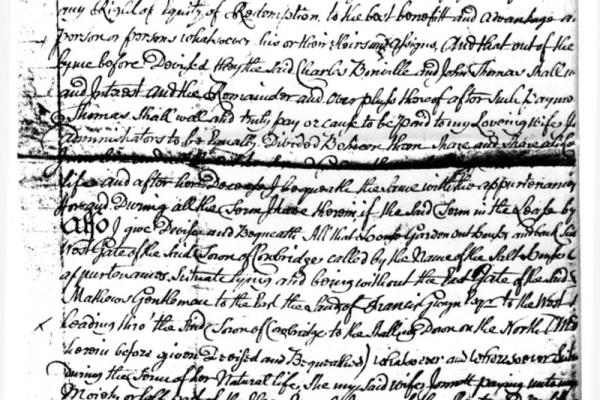 my Right of Equity of Redemption to the best benefitt and advantage
person or persons whatsoever his or their heirs and assigns, And that out of the
before Devised they the said Charles Bonville and John Thomas shall
and Interest and the Remainder and overpluss thereof after such payme
Thomas shall well and truly pay or cause to be paid to my Loveing wife
administrators to be Equally Divided Between them share and share alike
life and after her Decease I bequeath the same with the appurtenances
and During all the Term I have therein if the said Term in the Lease by
Also I give Devise and Bequeath All that House Garden outhouses and back
West Gate of the said Town of Cowbridge called by the Name of the Salt House
appurtenances Situate lying and being without the East Gate of the said
Mathews Gentleman to the East the Land of Francis Gwyn Esqr to the West
Leading thro' the said Town of Cowbridge to the Down on the North
herein before given Devised and Bequeathed) whatsoever and wheresoever
During the Terme of her Natural life, She my said wife Jennett paying unto my
Moiety or half